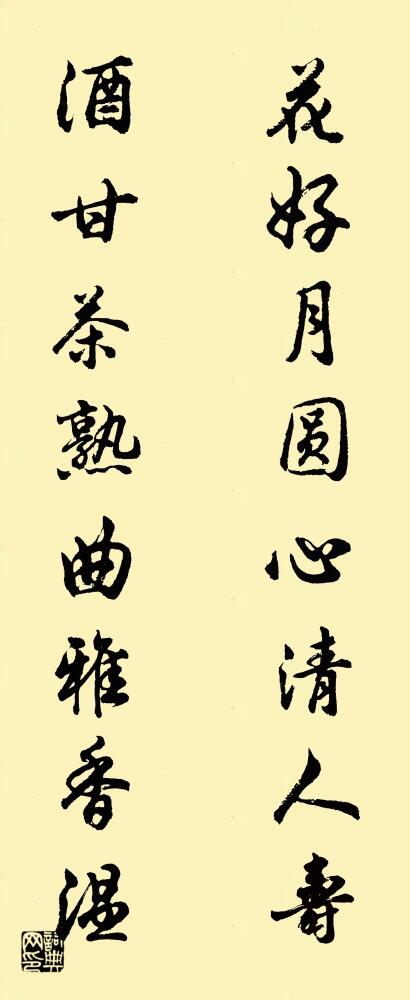 花好月圆心清人壽
酒甘茶熟曲雅香温